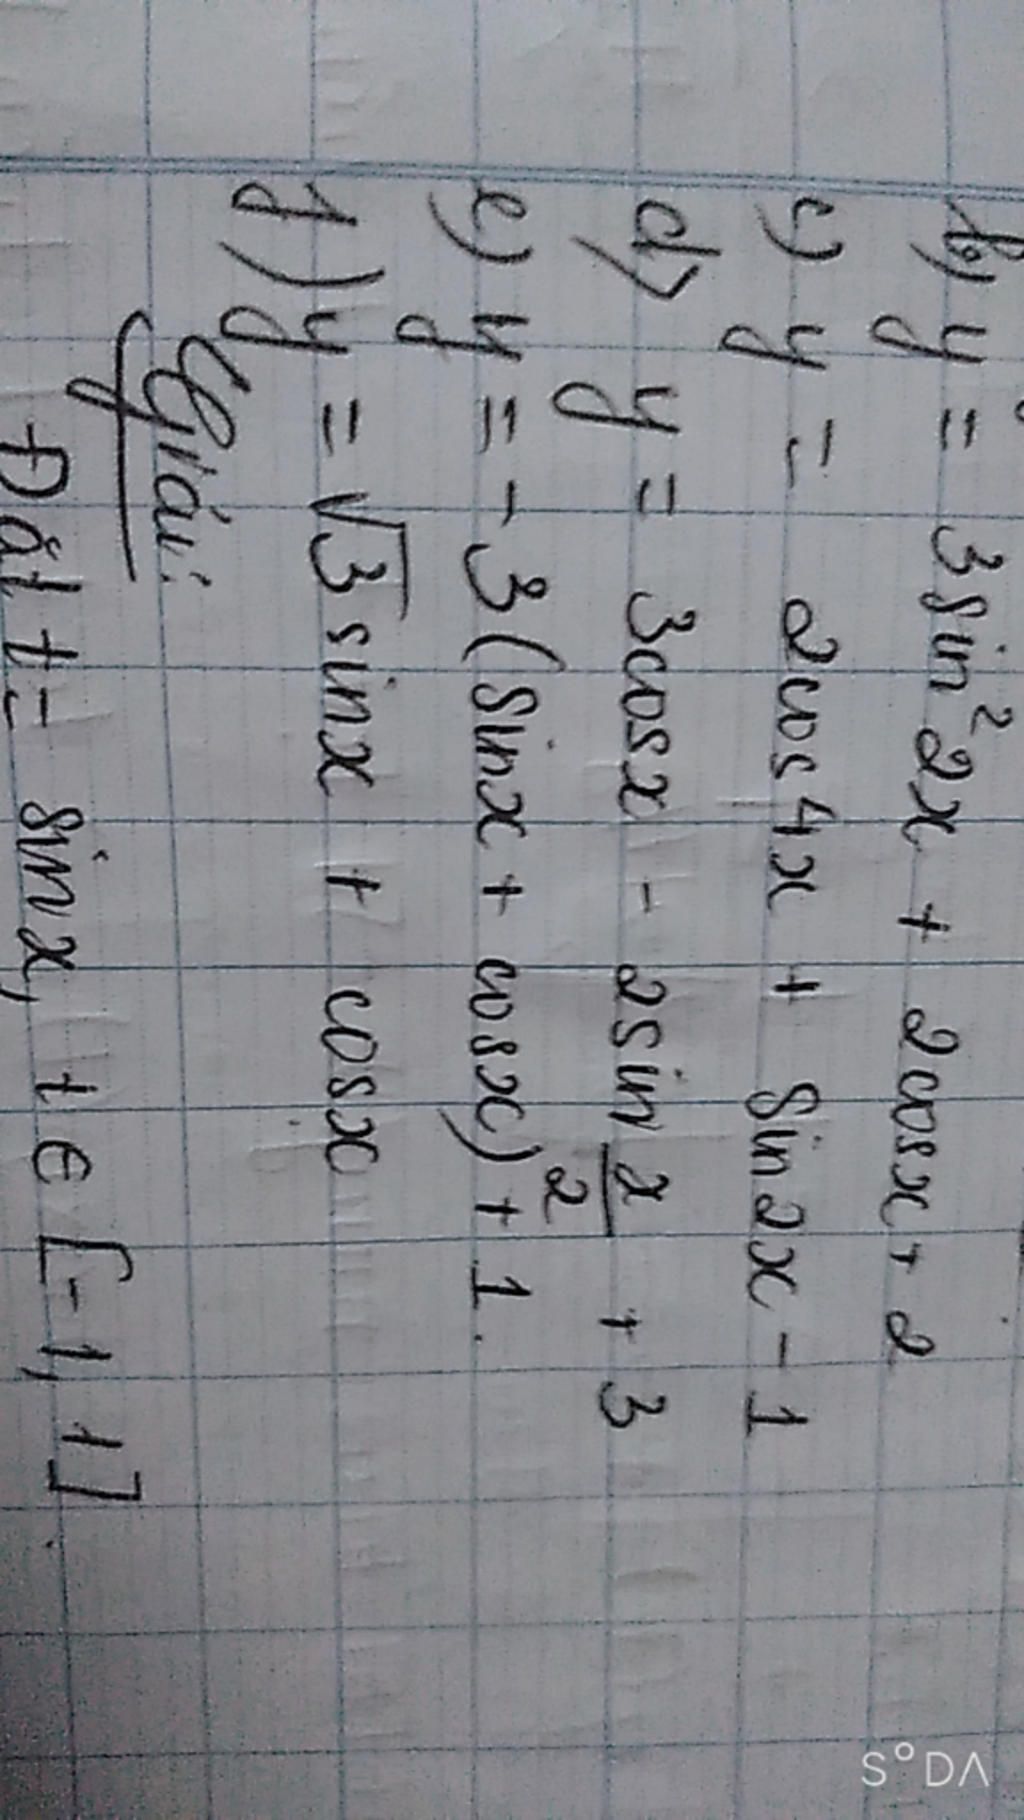 b) y = 3sin²2x + 2cosx + 2
c) y = 2cos4x + sin2x - 1
d) y = 3cosx - 2sin x/2 + 3
e) y = -3(sinx + cosx)² + 1.
f) y = √3 sinx + cosx
Giải:
Đặt t = sinx, t ∈ [-1, 1].
S°DA